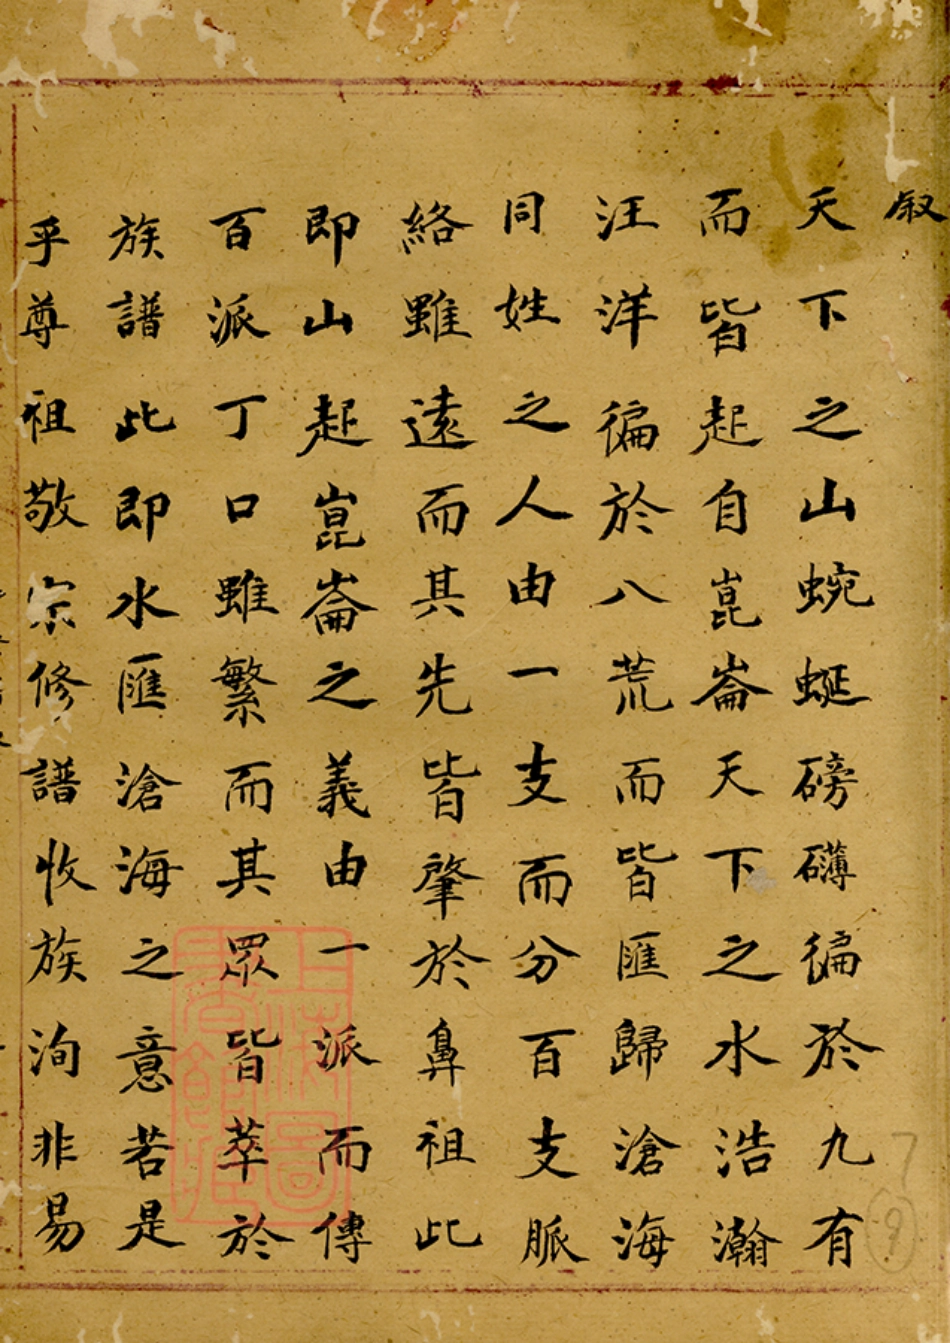 叙
天下之山蜿蜒磅礴徧於九有
而皆起自崑崙天下之水浩瀚
汪洋徧於八荒而皆匯歸滄海
同姓之人由一支而分百支脈
絡雖遠而其先皆肇於鼻祖此
即山起崑崙之義由一派而傳
百派丁口雖繁而其眾皆萃於
族譜此即水匯滄海之意若是
乎尊祖敬宗修譜收族洵非易
上海圖書館藏
7
9